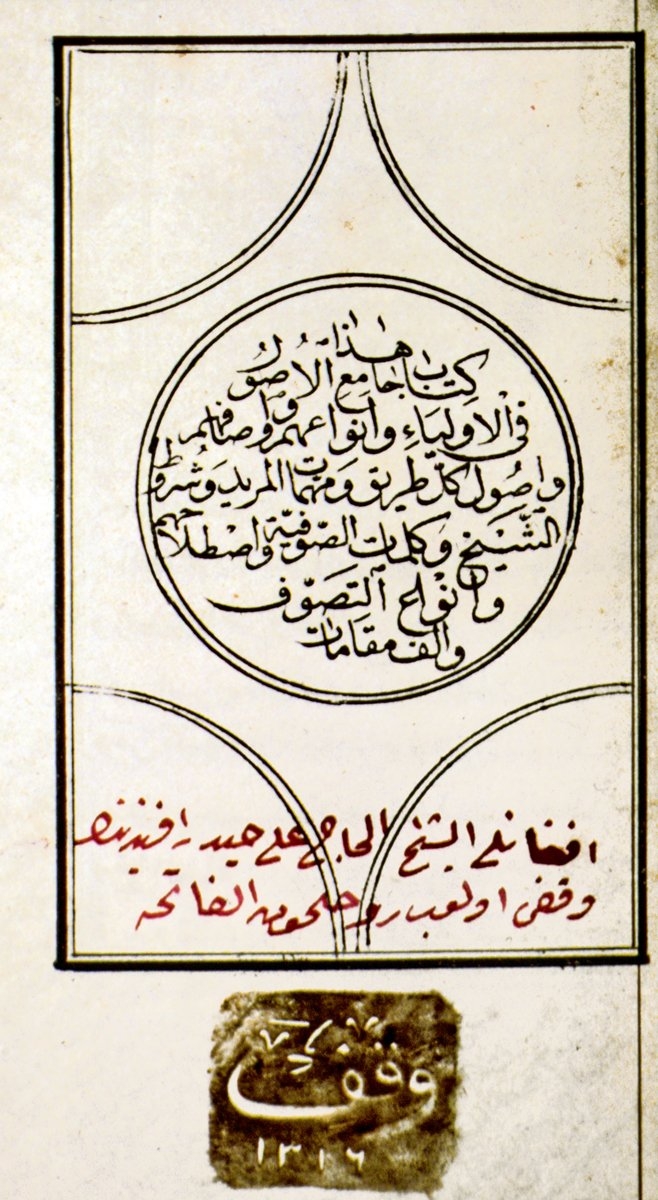 هذا
كتاب جامع الاصول
في الاولياء وانواعهم واوصافهم
واصول كل طريق ومهمات المريد وشروط
الشيخ وكلمات الصوفية واصطلاحهم
وانواع التصوف
والف مقامات
افغانلى الشيخ الحاج على حيدر افندينك
وقفى اولوب روحيچون الفاتحه
وقف
١٣١٦